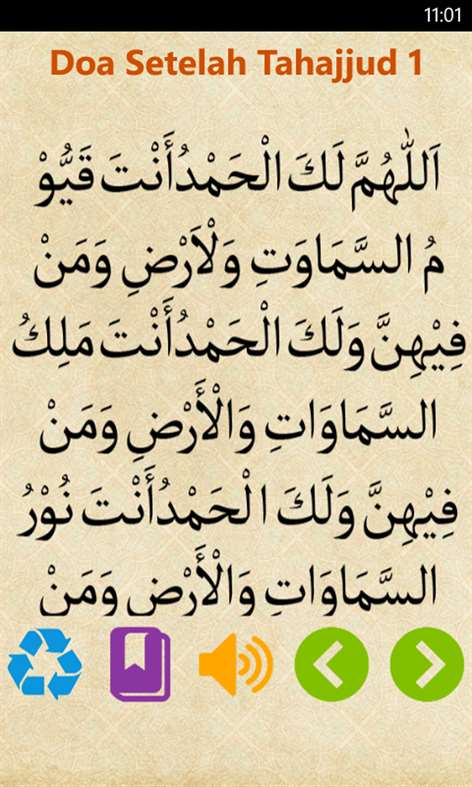 11:01
Doa Setelah Tahajjud 1
اَللّٰهُمَّ لَكَ الْحَمْدُأَنْتَ قَيُّوْ
مُ السَّمَاوَتِ وَلْاَرْضِ وَمَنْ
فِيْهِنَّ وَلَكَ الْحَمْدُأَنْتَ مَلِكُ
السَّمَاوَاتِ وَالْأَرْضِ وَمَنْ
فِيْهِنَّ وَلَكَ الْحَمْدُأَنْتَ نُوْرُ
السَّمَاوَاتِ وَالْأَرْضِ وَمَنْ